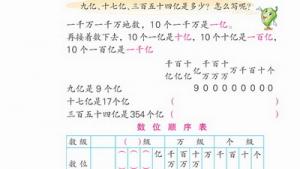 九亿、十七亿、三百五十四亿是多少？怎么写呢？
一千万一千万地数，10个一千万是一亿。
再接着数下去，10个一亿是十亿，10个十亿是一百亿，
10个一百亿是一千亿
千百十 千百十
亿亿亿亿万万万万千百十个
九亿是9个亿 9 0 0 0 0 0 0 0 0
十七亿是17个亿 （
三百五十四亿是354个亿 （
数位顺序表
数级 （ ）级 万级 个级
数位 （ （ （ 亿 千万 百万 十万 万 千 百 十 个